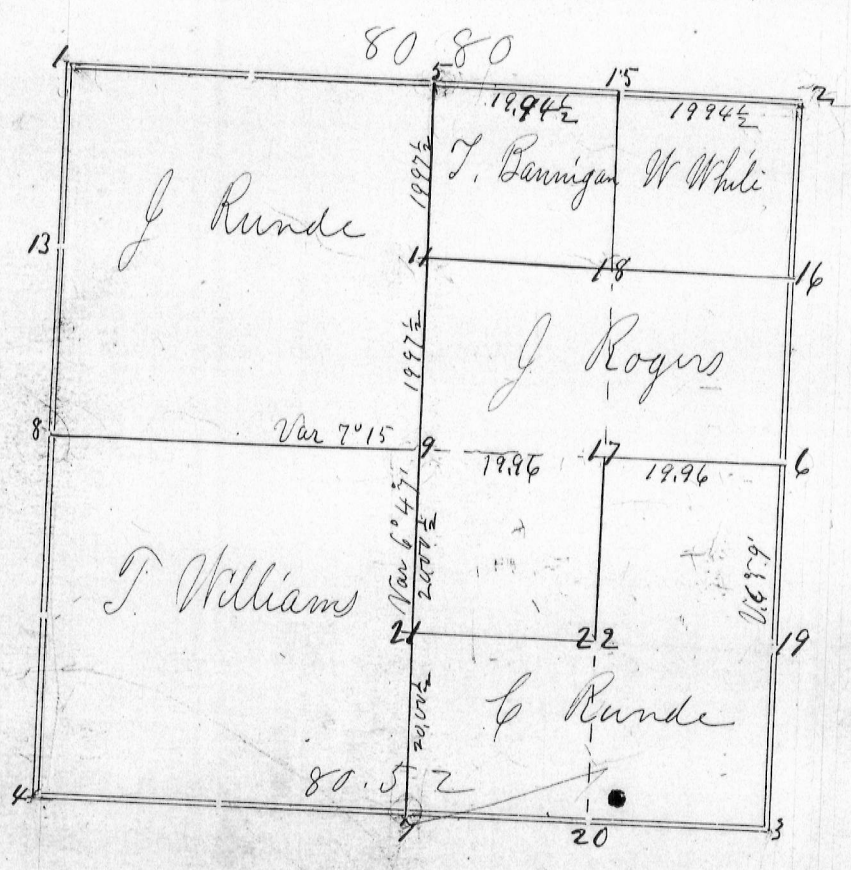 80 80
1 5 15 2
19.94½ 1994½
1997½
T. Bannigan W White
J Runde
13 11 18 16
1997½
J Rogers
8 Var 7°15 9 17 6
19.96 19.96
Var 6°47'
2000½
T. Williams
21 22 19
20,00½
C Runde
80.52
4 7 20 3